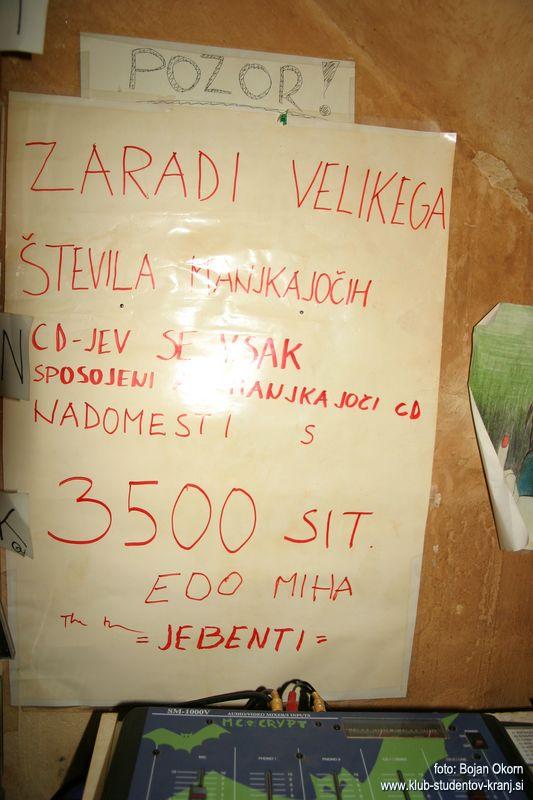 POZOR!
ZARADI VELIKEGA
ŠTEVILA MANJKAJOČIH
CD-JEV SE VSAK
SPOSOJENI MANJKAJOČI CD
NADOMESTI S
3500 SIT.
EDO MIHA
= JEBENTI =
N
K
SM-1000V
AUDIO/VIDEO MIXER/8 INPUTS
MC CRYPT
MIC
PHONO 1
foto: Bojan Okorn
www.klub-studentov-kranj.si